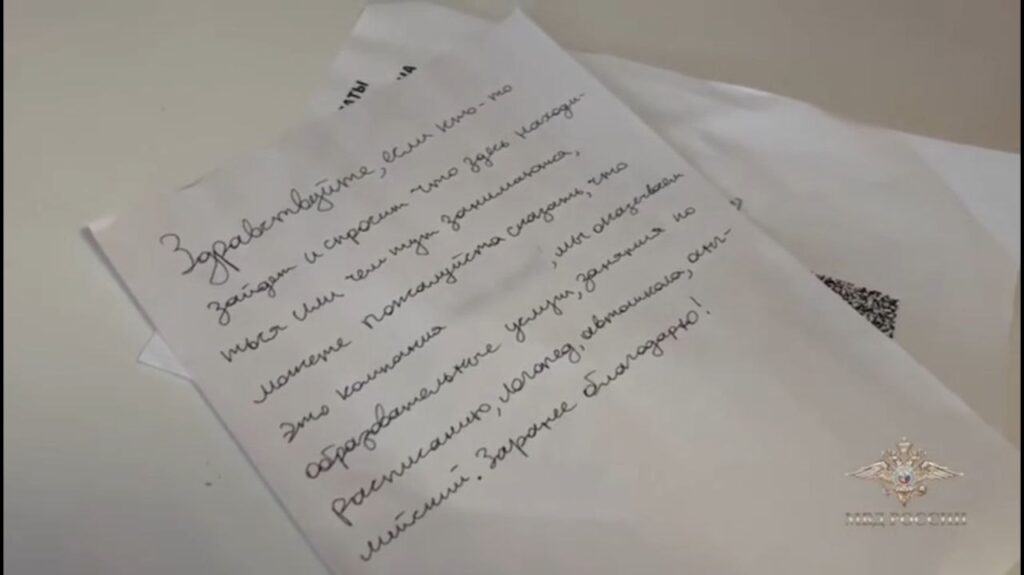 АТЫ
НА
Здравствуйте, если кто-то
зайдет и спросит что здесь находи-
ться или чем тут занимаются,
можете пожалуйста сказать, что
это компания , мы оказываем
образовательные услуги, занятия по
расписанию, логопед, автошкола, анг-
лийский. Заранее благодарю!
МВД РОССИИ